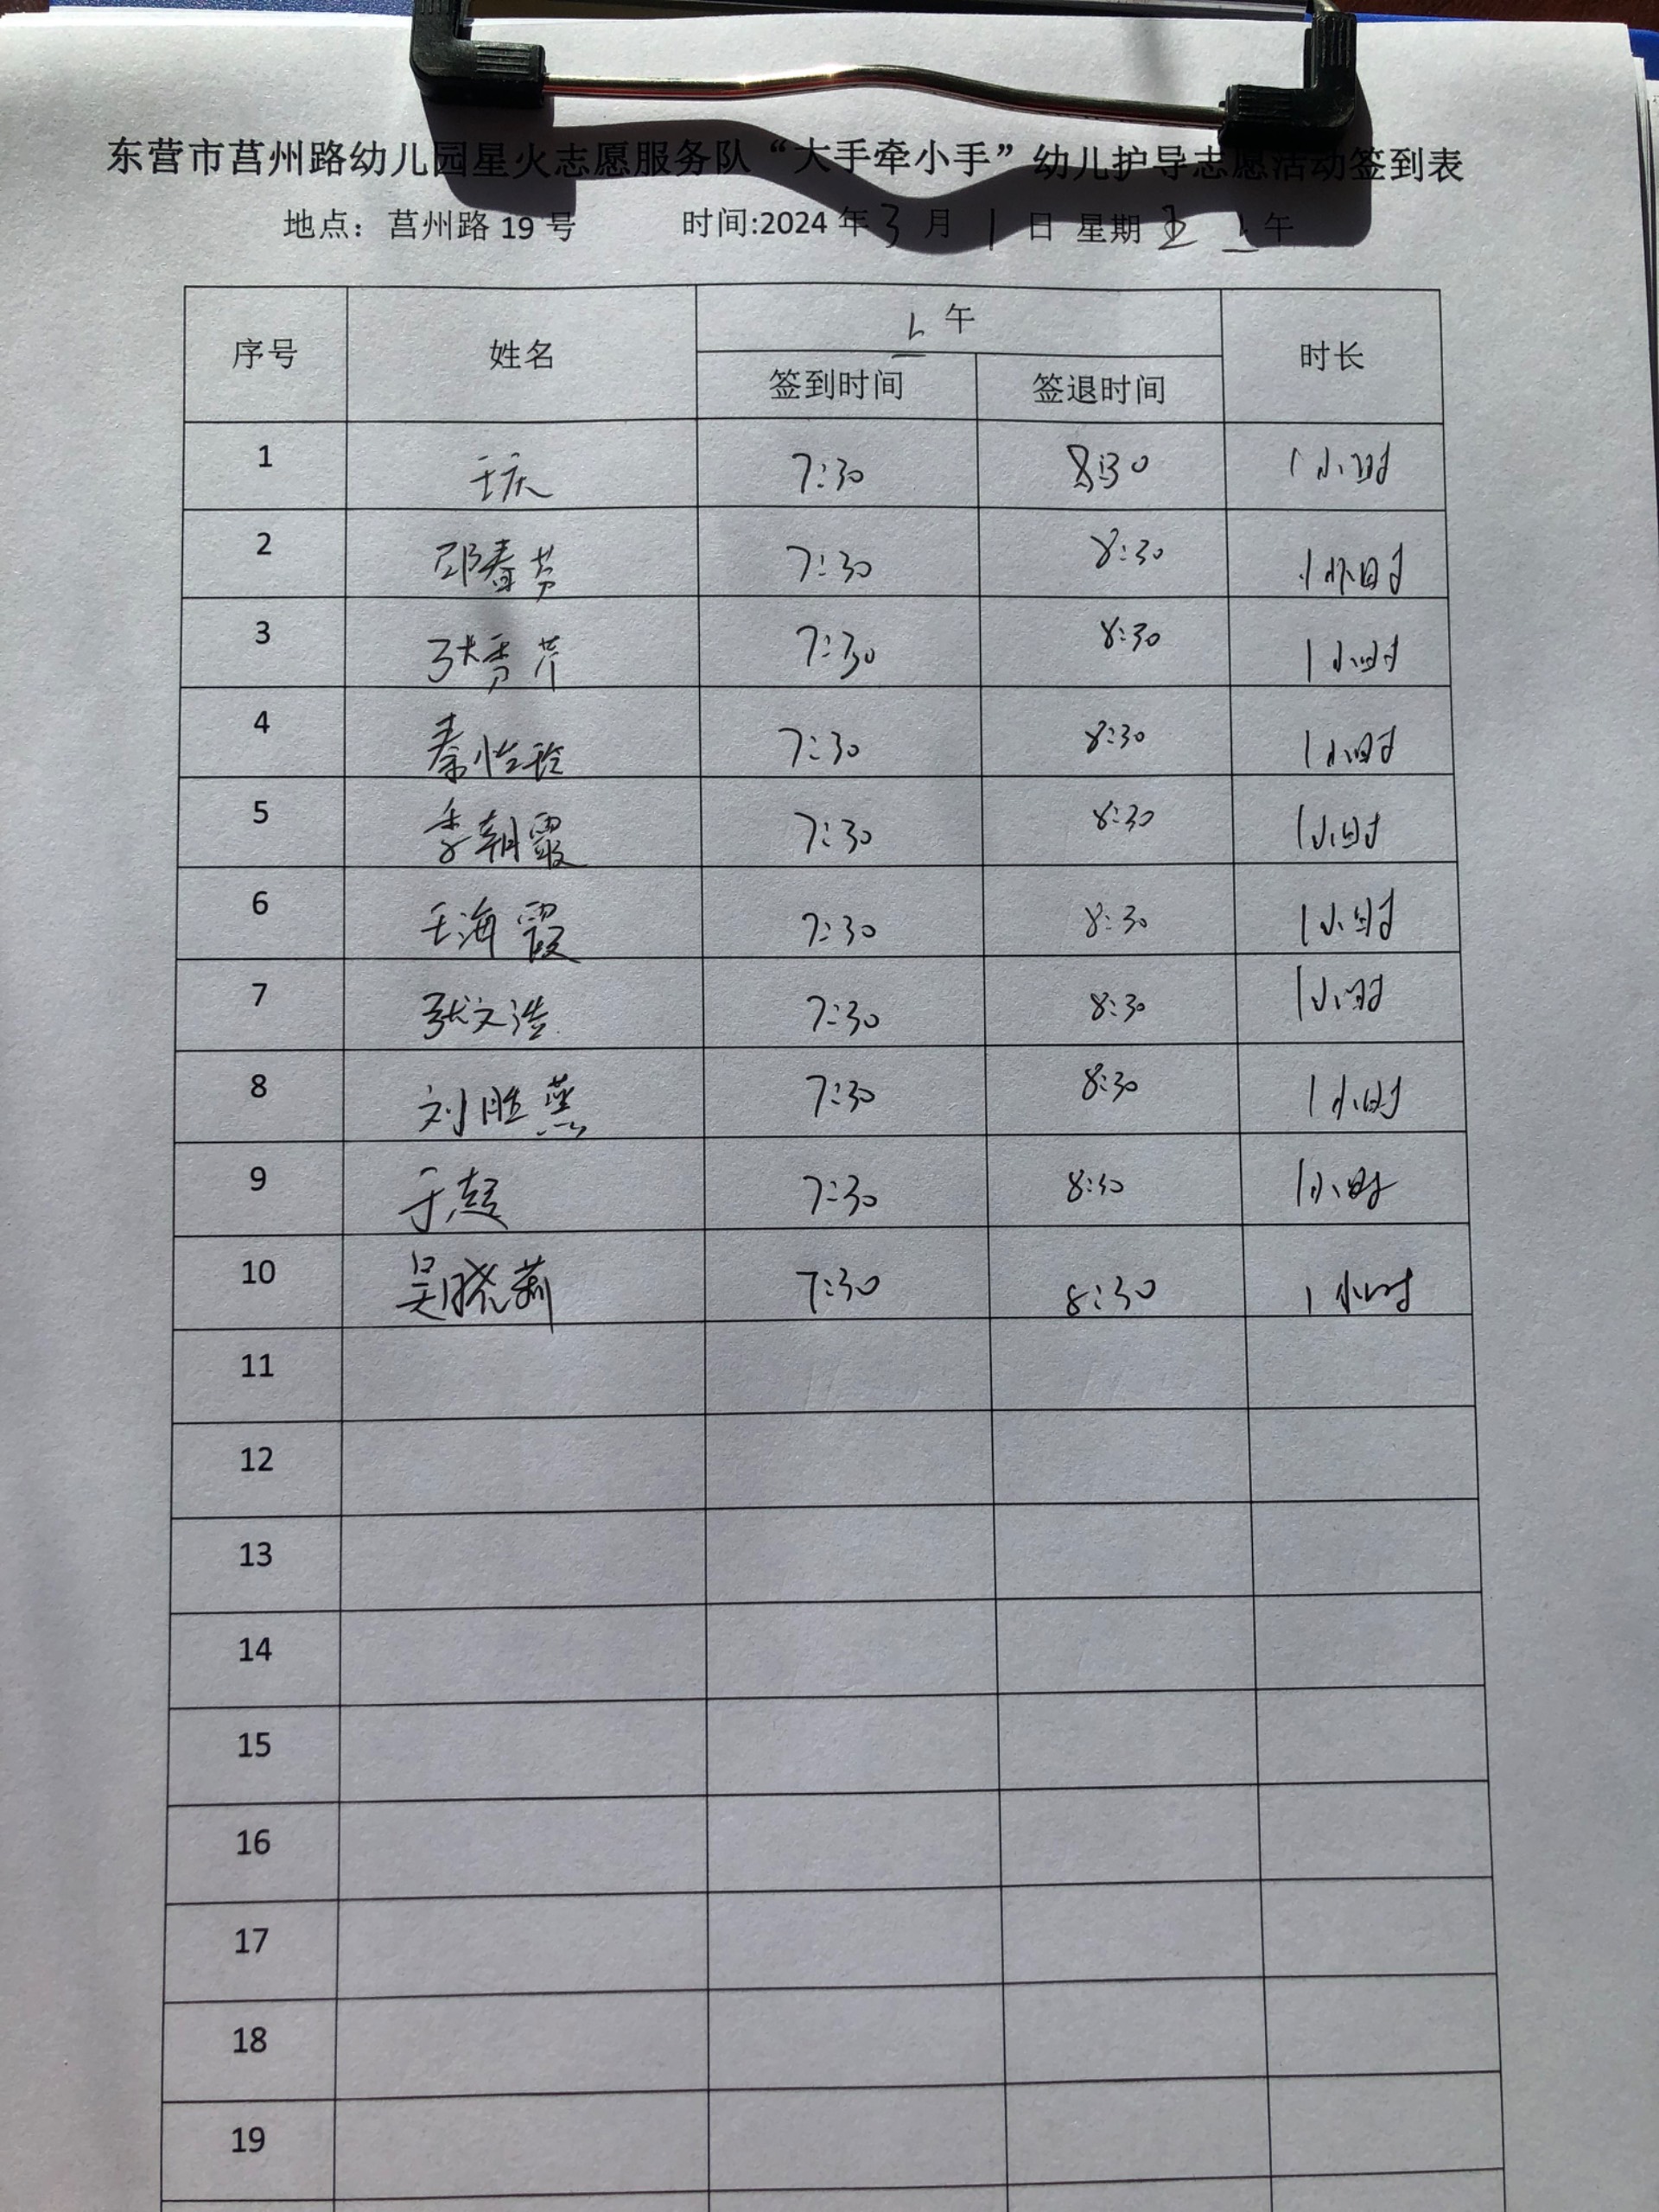 东营市莒州路幼儿园星火志愿服务队“大手牵小手”幼儿护导志愿活动签到表
地点：莒州路 19 号 时间:2024 年 3 月 1 日 星期 五 上 午
序号 姓名 上 午 时长
签到时间 签退时间
1 于庆 7:30 8:30 1小时
2 邵春芳 7:30 8:30 1小时
3 张秀芹 7:30 8:30 1小时
4 秦怡玲 7:30 8:30 1小时
5 李朝霞 7:30 8:30 1小时
6 王海霞 7:30 8:30 1小时
7 张文浩 7:30 8:30 1小时
8 刘胜燕 7:30 8:30 1小时
9 于超 7:30 8:30 1小时
10 吴晓莉 7:30 8:30 1小时
11
12
13
14
15
16
17
18
19